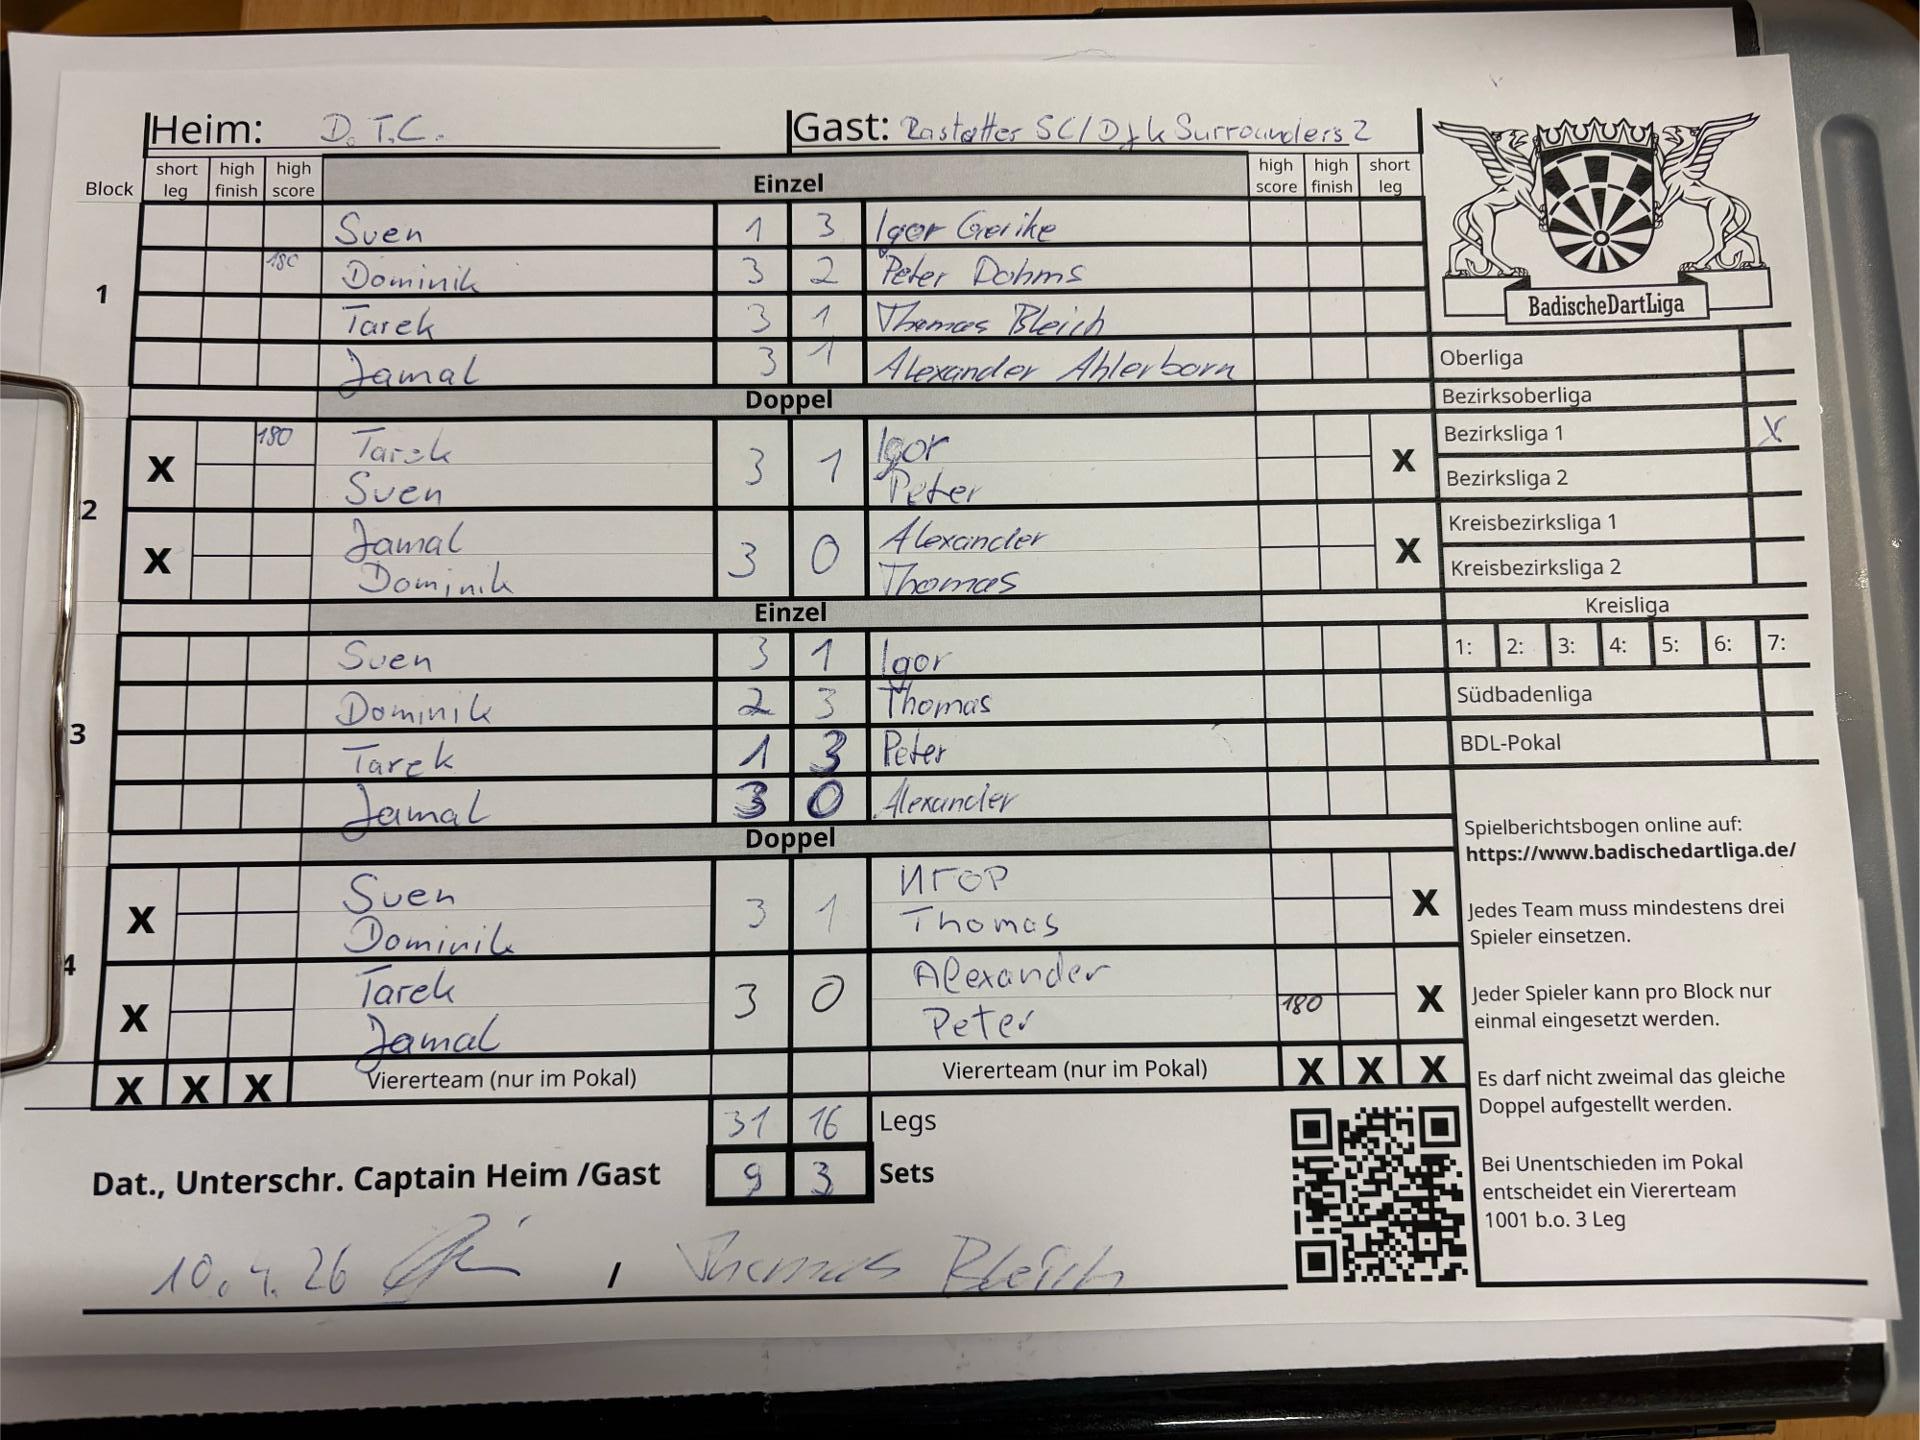 Heim: D.T.C. Gast: Rastatter SC/DJK Surrounders 2
Block short leg high finish high score Einzel high score high finish short leg
1
Sven 1 3 Igor Gerike
180 Dominik 3 2 Peter Dohms
Tarek 3 1 Thomas Bleich
Jamal 3 1 Alexander Ahlerborn
Doppel
2
X 180 Tarek 3 1 Igor X
Sven Peter
X Jamal 3 0 Alexander X
Dominik Thomas
Einzel
3
Sven 3 1 Igor
Dominik 2 3 Thomas
Tarek 1 3 Peter
Jamal 3 0 Alexander
Doppel
4
X Sven 3 1 ИГОР X
Dominik Thomas
X Tarek 3 0 Alexander X
Jamal Peter 180
X X X Vierterteam (nur im Pokal) Viererteam (nur im Pokal) X X X
31 16 Legs
9 3 Sets
Dat., Unterschr. Captain Heim /Gast
10.4.26 / Thomas Bleich
BadischeDartLiga
Oberliga
Bezirksoberliga
Bezirksliga 1 X
Bezirksliga 2
Kreisbezirksliga 1
Kreisbezirksliga 2
Kreisliga
1: 2: 3: 4: 5: 6: 7:
Südbadenliga
BDL-Pokal
Spielberichtsbogen online auf:
https://www.badischedartliga.de/
Jedes Team muss mindestens drei
Spieler einsetzen.
Jeder Spieler kann pro Block nur
einmal eingesetzt werden.
Es darf nicht zweimal das gleiche
Doppel aufgestellt werden.
Bei Unentschieden im Pokal
entscheidet ein Viererteam
1001 b.o. 3 Leg